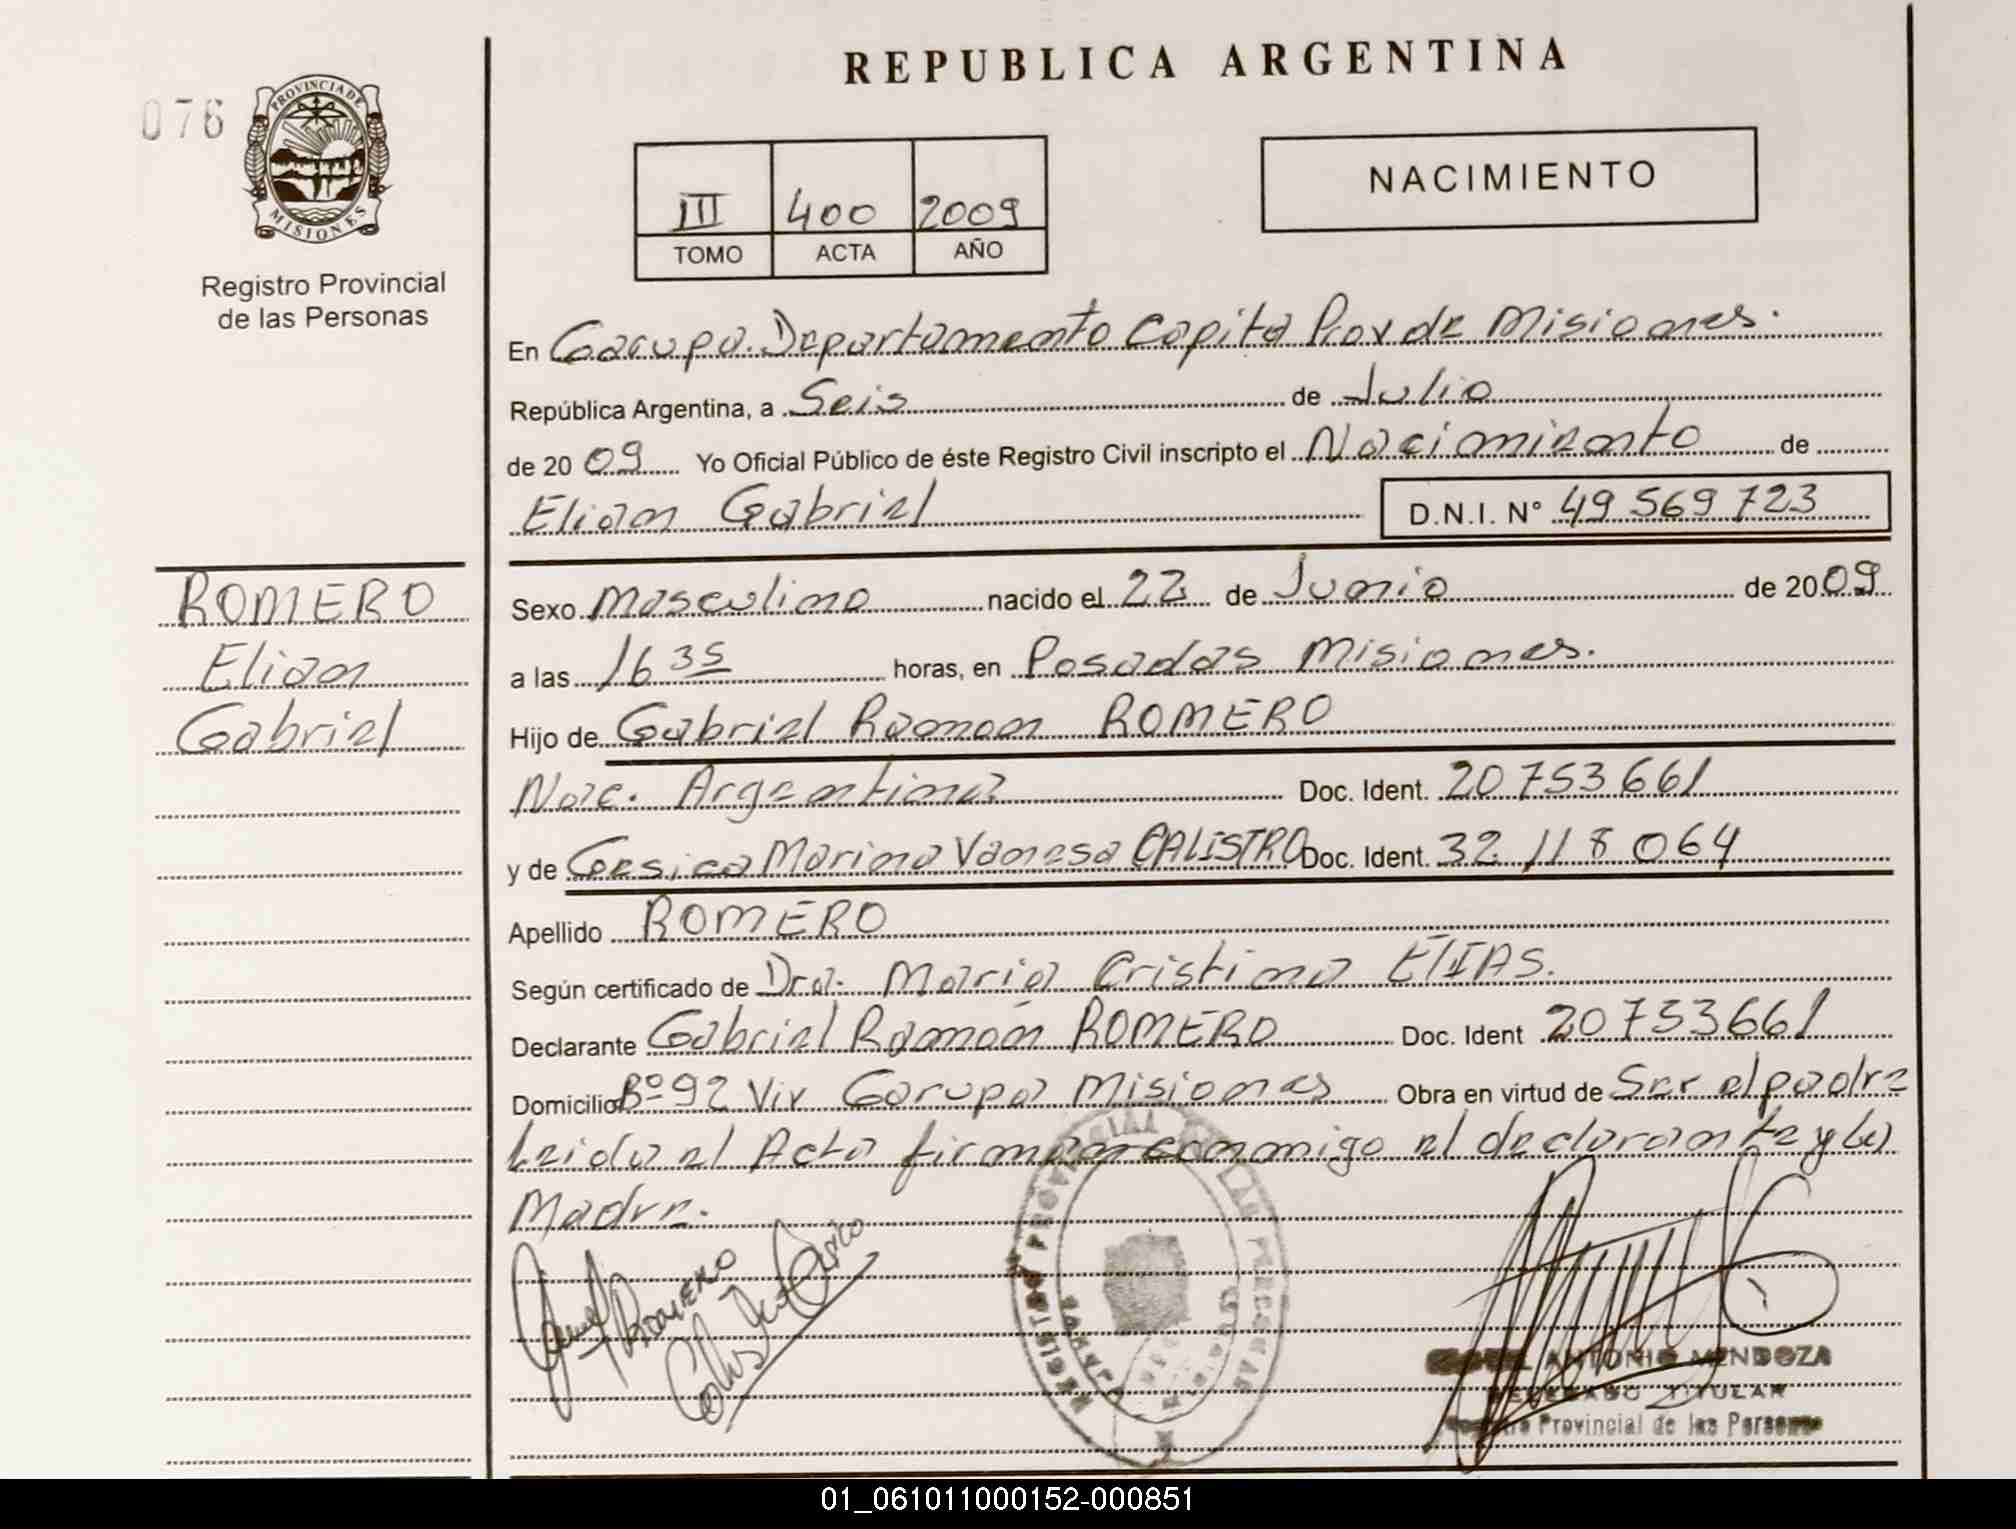 REPUBLICA ARGENTINA
076
PROVINCIA DE
MISIONES
Registro Provincial
de las Personas
NACIMIENTO
III 400 2009
TOMO ACTA AÑO
En Garupa. Departamento Capital Prov de Misiones.
República Argentina, a Seis de Julio
de 20 09 Yo Oficial Público de éste Registro Civil inscripto el Nacimiento de
Elian Gabriel D.N.I. N° 49 569 723
ROMERO
Elian
Gabriel
Sexo Masculino nacido el 22 de Junio de 2009
a las 16 35 horas, en Posadas Misiones.
Hijo de Gabriel Ramon ROMERO
Nac. Argentina Doc. Ident. 20 753 661
y de Marina Vanesa CALISTRO Doc. Ident. 32 118 064
Apellido ROMERO
Según certificado de Dra. Maria Cristina ELIAS.
Declarante Gabriel Ramón ROMERO Doc. Ident 20 753661
Domicilio Bº 92 Viv Garupa Misiones Obra en virtud de Ser el padre
Leida el Acta firman conmigo el declarante y la
Madre.
ROMERO
REGISTRO PROVINCIAL DE LAS PERSONAS
ANTONIO MENDOZA
DELEGADO TITULAR
Provincial de las Personas
01_061011000152-000851